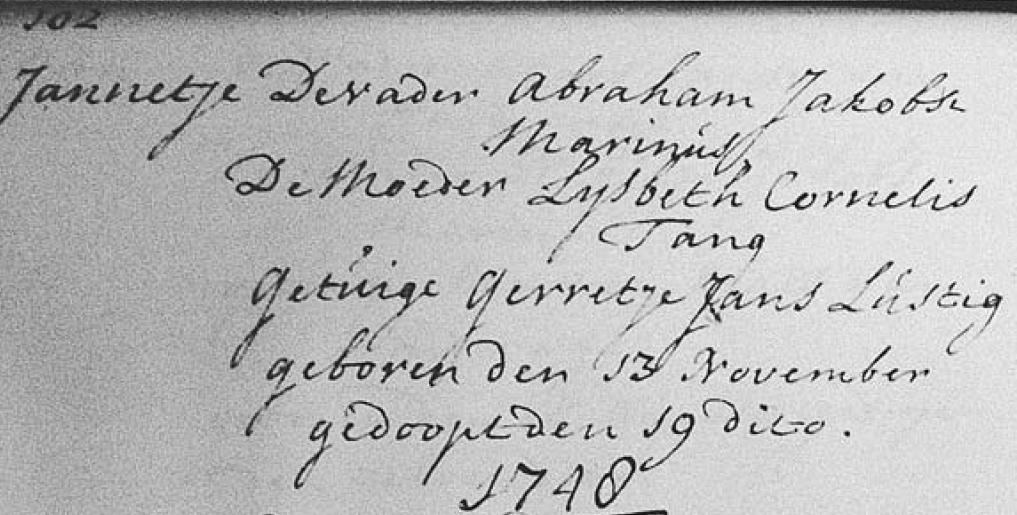 102
Jannetje De vader Abraham Jakobsz
Marinus,
De Moeder Lysbeth Cornelis
Tang
Getuige Gerretje Jans Lustig
geboren den 13 November
gedoopt den 19 dito.
1748